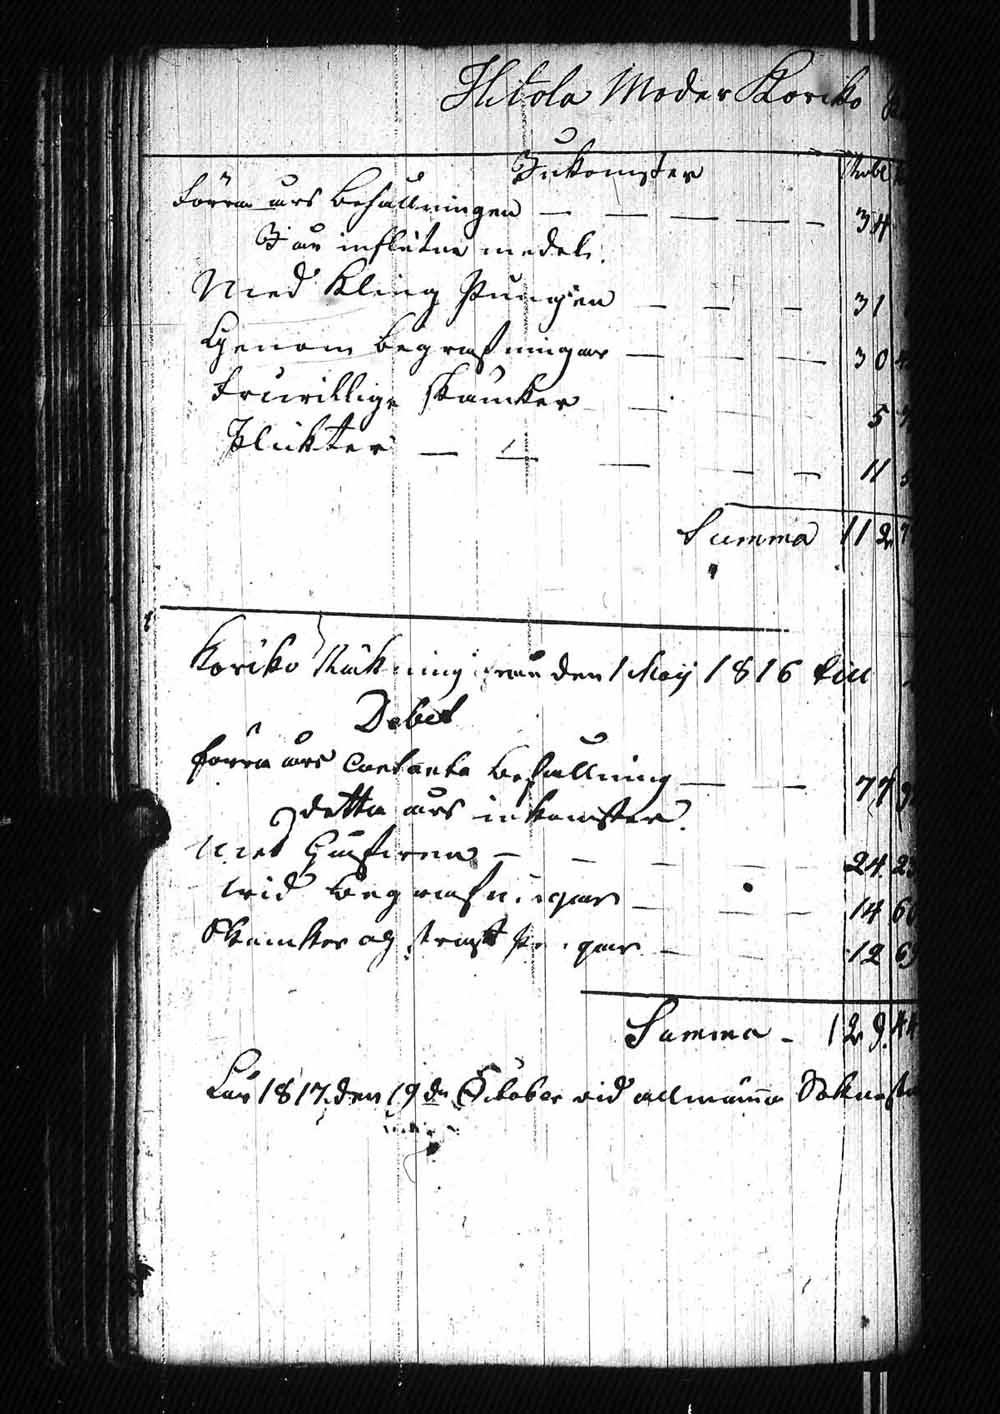 Hitola Moder Kyrko
Inkomster Rubl
Förra års behållningen — — — — — — 34
I år influtne medel:
Med Kling Pungen — — — 31
Genom begrafningar — — — 30
Friwillige skänker — — 5
Plikter — — — — — 11
Summa 112
Kyrko Räkning från den 1 Maij 1816 till
Debet
förra års contanta behållning — — — 77
detta års inkomster.
Med — — — — — 24 23
wid begrafningar — — — 14 60
Skänker och — — 12 63
Summa - 129.44
År 1817. den 19de October wid allmänna